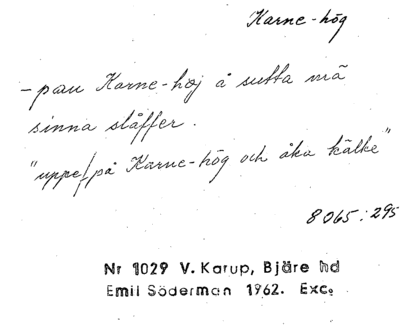 Karne-hög
- pau Karne-høj å sutta mä
sinna slåffer.
"uppe/på Karne-hög och åka kälke"
8065:295
Nr 1029 V. Karup, Bjäre hd
Emil Söderman 1962. Exc.